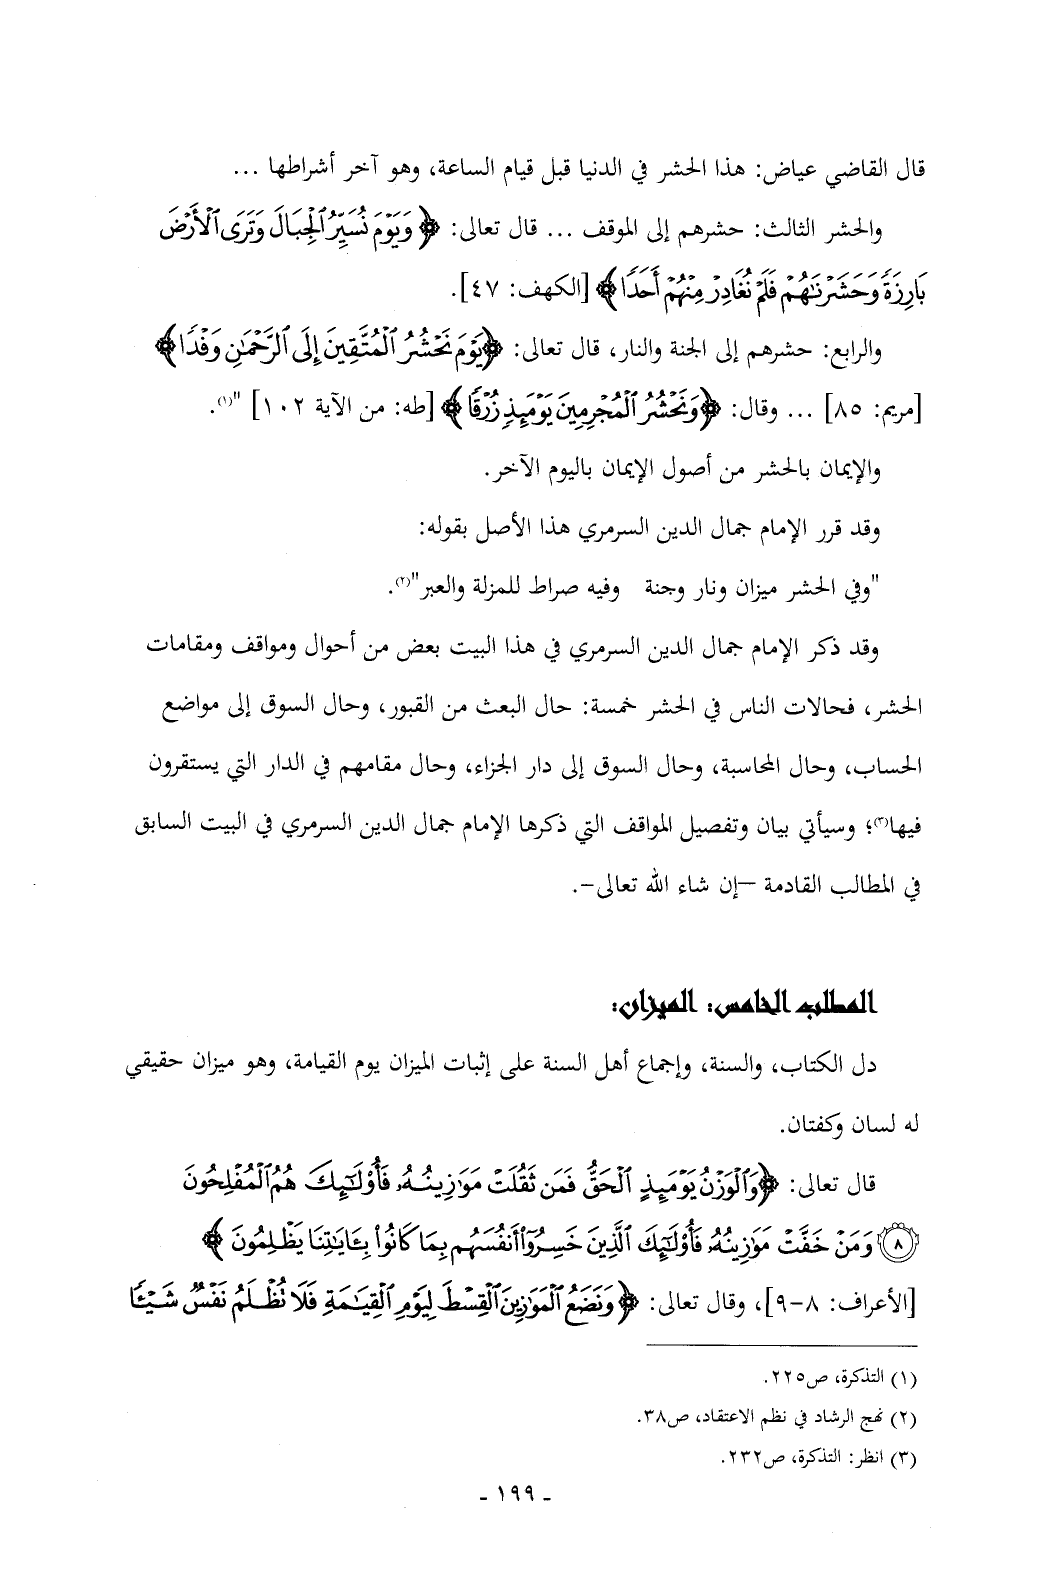 قال القاضي عياض: هذا الحشر في الدنيا قبل قيام الساعة، وهو آخر أشراطها ...
والحشر الثالث: حشرهم إلى الموقف ... قال تعالى: ﴿وَيَوْمَ نُسَيِّرُ ٱلْجِبَالَ وَتَرَى ٱلْأَرْضَ
بَارِزَةً وَحَشَرْنَٰهُمْ فَلَمْ نُغَادِرْ مِنْهُمْ أَحَدًا﴾ [الكهف: ٤٧].
والرابع: حشرهم إلى الجنة والنار، قال تعالى: ﴿يَوْمَ نَحْشُرُ ٱلْمُتَّقِينَ إِلَى ٱلرَّحْمَٰنِ وَفْدًا﴾
[مريم: ٨٥] ... وقال: ﴿وَنَحْشُرُ ٱلْمُجْرِمِينَ يَوْمَئِذٍ زُرْقًا﴾ [طه: من الآية ١٠٢] "(١).
والإيمان بالحشر من أصول الإيمان باليوم الآخر.
وقد قرر الإمام جمال الدين السرمري هذا الأصل بقوله:
"وفي الحشر ميزان ونار وجنة وفيه صراط للمزلة والعبر"(٢).
وقد ذكر الإمام جمال الدين السرمري في هذا البيت بعض من أحوال ومواقف ومقامات
الحشر، فحالات الناس في الحشر خمسة: حال البعث من القبور، وحال السوق إلى مواضع
الحساب، وحال المحاسبة، وحال السوق إلى دار الجزاء، وحال مقامهم في الدار التي يستقرون
فيها(٣)؛ وسيأتي بيان وتفصيل المواقف التي ذكرها الإمام جمال الدين السرمري في البيت السابق
في المطالب القادمة –إن شاء الله تعالى–.
المطلب الخامس: الميزان:
دل الكتاب، والسنة، وإجماع أهل السنة على إثبات الميزان يوم القيامة، وهو ميزان حقيقي
له لسان وكفتان.
قال تعالى: ﴿وَٱلْوَزْنُ يَوْمَئِذٍ ٱلْحَقُّ فَمَن ثَقُلَتْ مَوَٰزِينُهُۥ فَأُو۟لَٰٓئِكَ هُمُ ٱلْمُفْلِحُونَ
٨ وَمَنْ خَفَّتْ مَوَٰزِينُهُۥ فَأُو۟لَٰٓئِكَ ٱلَّذِينَ خَسِرُوٓا۟ أَنفُسَهُم بِمَا كَانُوا۟ بِـَٔايَٰتِنَا يَظْلِمُونَ﴾
[الأعراف: ٨-٩]، وقال تعالى: ﴿وَنَضَعُ ٱلْمَوَٰزِينَ ٱلْقِسْطَ لِيَوْمِ ٱلْقِيَٰمَةِ فَلَا تُظْلَمُ نَفْسٌ شَيْـًٔا
(١) التذكرة، ص٢٢٥.
(٢) نهج الرشاد في نظم الاعتقاد، ص٣٨.
(٣) انظر: التذكرة، ص٢٣٢.
- ١٩٩ -